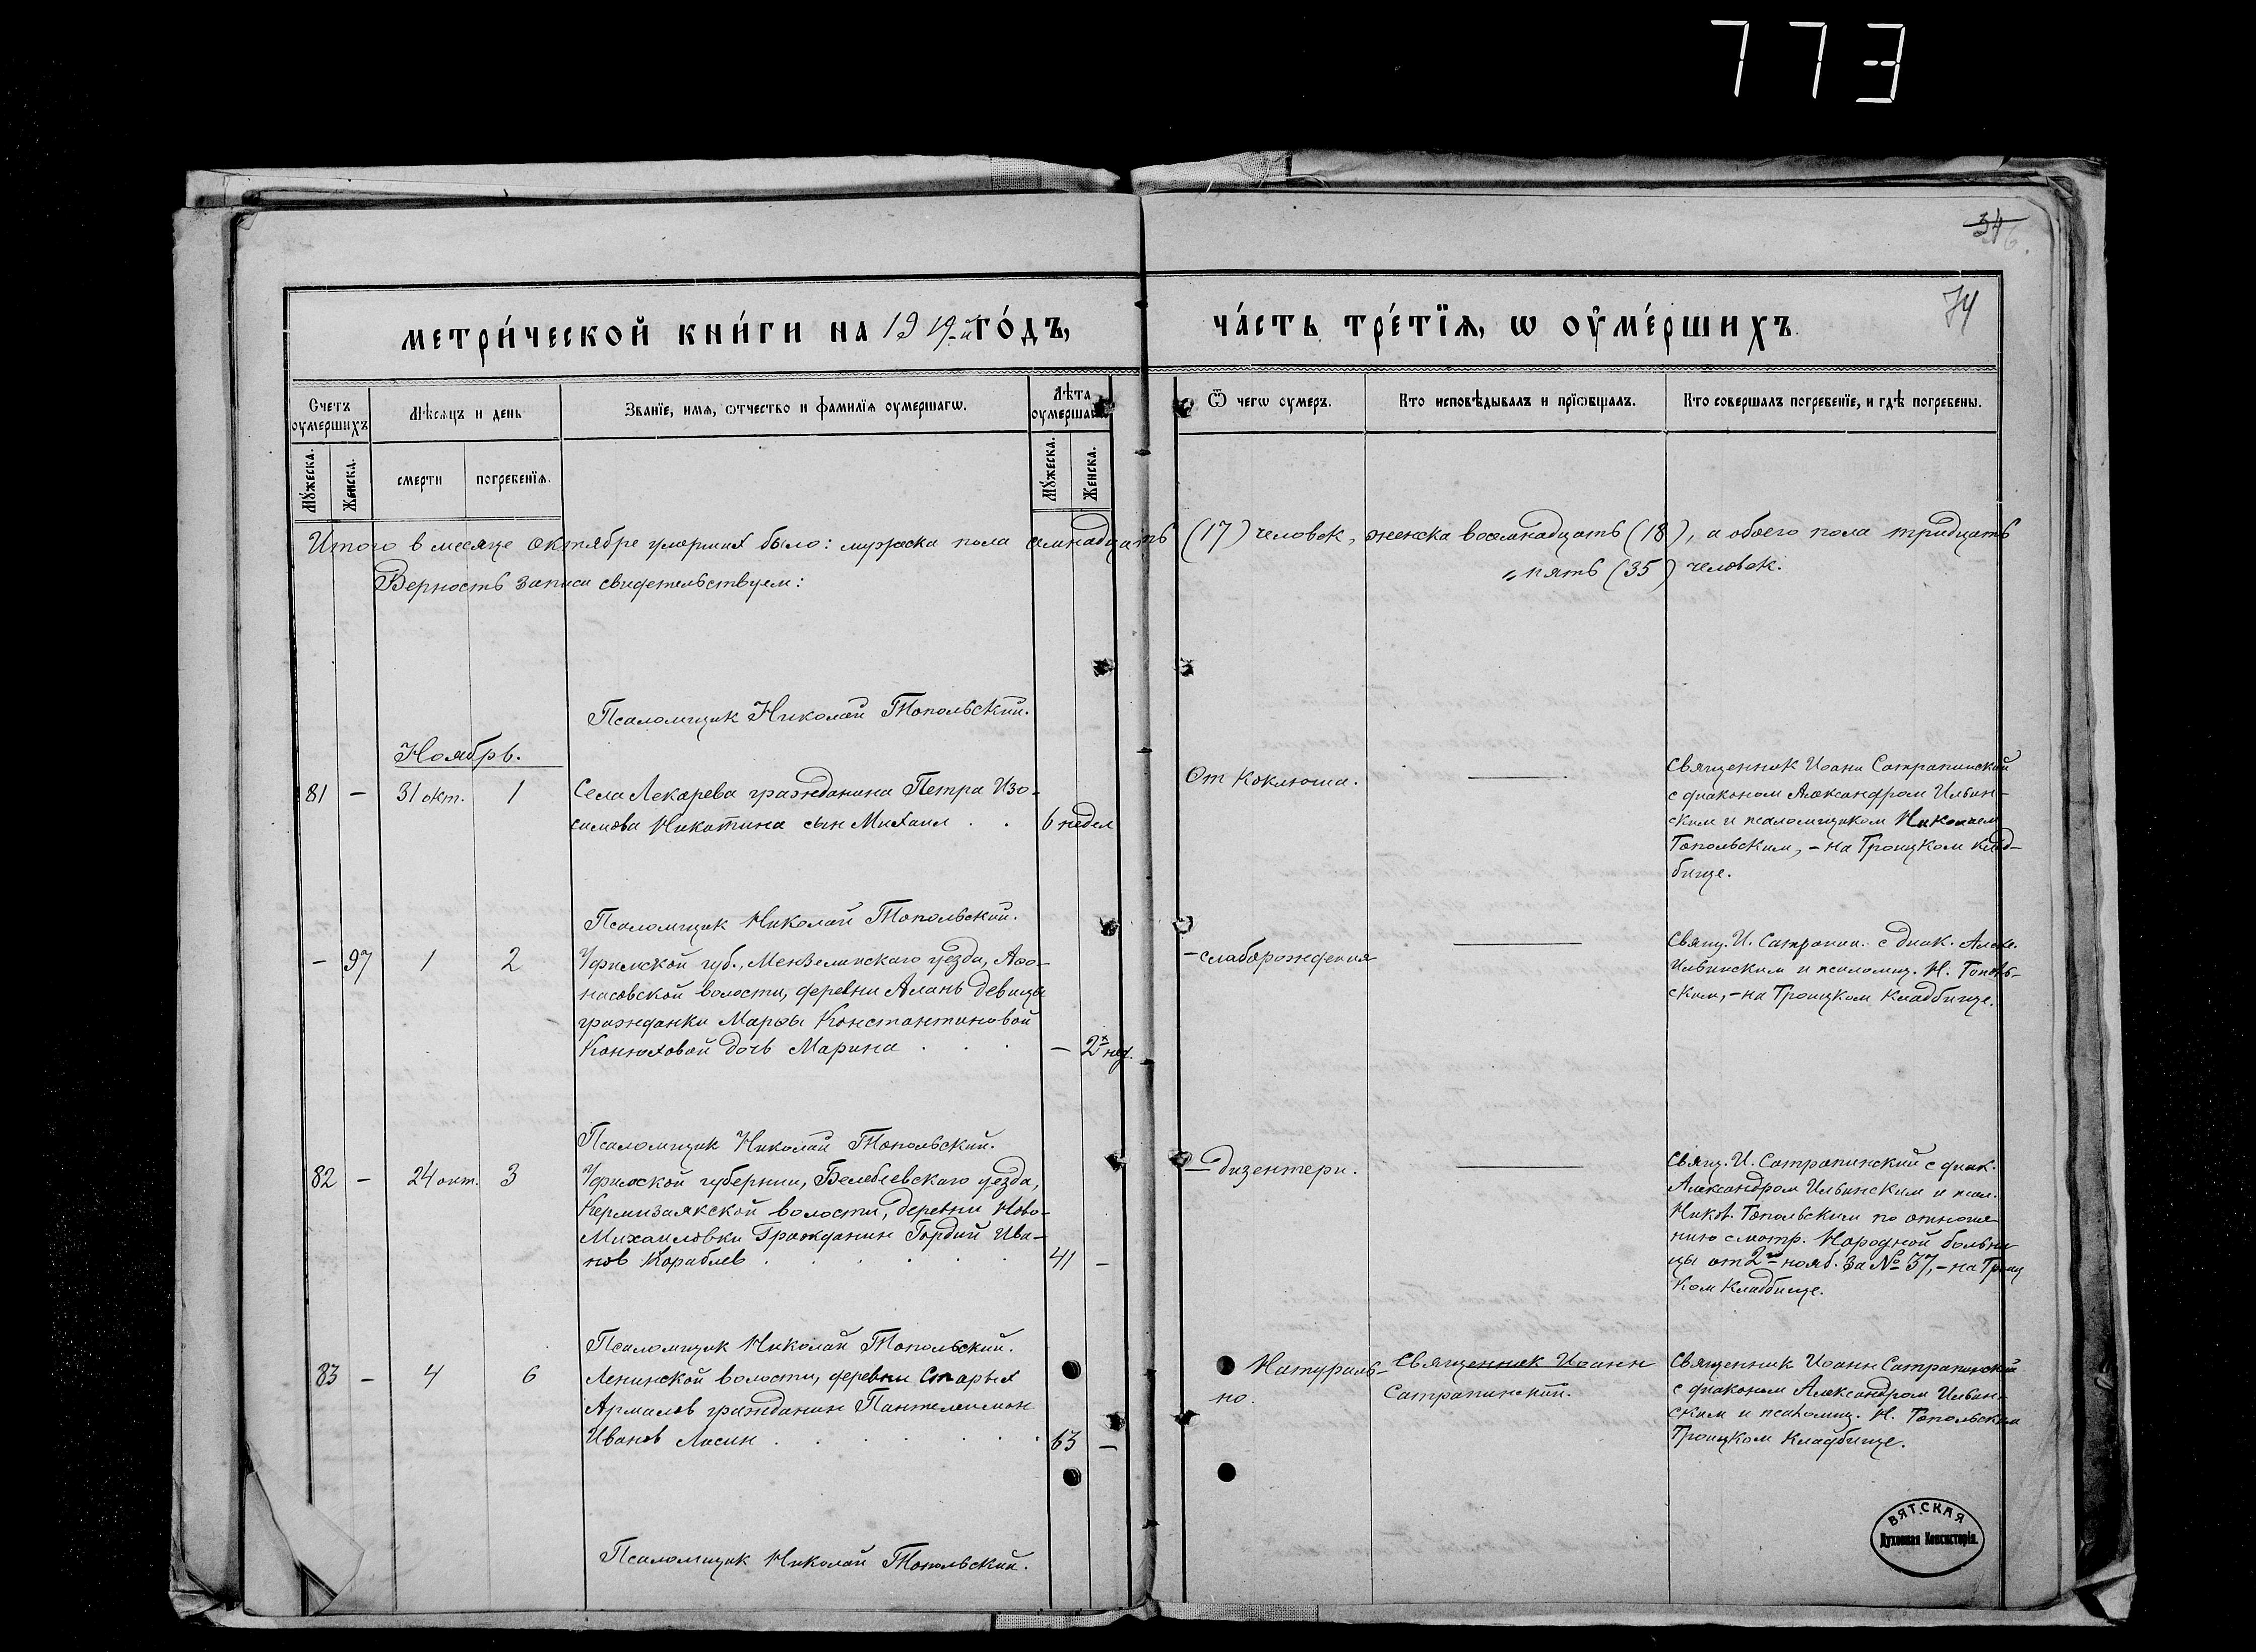 773
34
74
МЕТРИ́ЧЕСКОЙ КНИ́ГИ НА 1919-й ГО́ДЪ,
ЧА́СТЬ ТРЕ́ТЇЯ, Ѡ ОУ҆МЕ́РШИХЪ
Счетъ оумершихъ
Мѣсяцъ и день
Званїе, имя, ѿтчество и фамилїя оумершагѡ.
Лѣта оумершаг
Ѿ чегѡ оумеръ.
Кто исповѣдывалъ и прїѡбщалъ.
Кто совершалъ погребенїе, и гдѣ погребены.
Мужеска.
Женска.
смерти
погребенїя.
Мужеска.
Женска.
Итого в месяце октябре умерших было: мужска пола семнадцать (17) человек, женска восемнадцать (18), а обоего пола тридцать
пять (35) человек.
Верность записи свидетельствуем:
Псаломщик Николай Топольский.
Ноябрь.
81 - 31 окт. 1
Села Лекарева гражданина Петра Изо-
симова Никитина сын Михаил . . 6 недел
От коклюша.
Священник Иоанн Сатрапинский
с диаконом Александром Ильин-
ским и псаломщиком Николаем
Топольским, - на Троицком клад-
бище.
Псаломщик Николай Топольский.
- 97 1 2
Уфимской губ., Мензелинскаго уезда, Афо-
насовской волости, деревни Алань девицы
гражданки Марфы Константиновой
Конюховой дочь Марина . . . - 2х нед.
- слаборождения
Свящ. И. Сатрапин. с диак. Алекс.
Ильинским и псаломщ. Н. Тополь-
ским, - на Троицком кладбище.
Псаломщик Николай Топольский.
82 - 24 окт. 3
Уфимской губернии, Белебеевскаго уезда,
волости, деревни Ново-
Михаиловки Гражданин Гордий Ива-
нов Кораблев . . . . . . 41 -
- дизентери.
Свящ. И. Сатрапинский с диак.
Александром Ильинским и псал.
Никол. Топольским по отноше-
нию смотр. Народной больни
цы от 2го нояб. за № 37, - на Троиц
ком кладбище.
Псаломщик Николай Топольский.
83 - 4 6
Ленинской волости, деревни Старых
Армалов гражданин Пантелеимон
Иванов Лисин . . . . . . 63 -
Натураль-
но.
Священник Иоанн
Сатрапинский.
Священник Иоанн Сатрапинский
с диаконом Александром Ильин-
ским и псаломщ. Н. Топольским
Троицком кладбище.
Псаломщик Николай Топольский.
ВЯТСКАЯ
Духовная Консисторія.